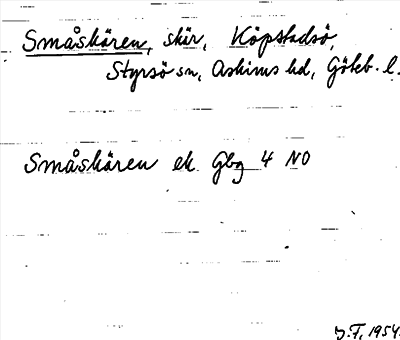 Småskären, skär, Köpstadsö,
Styrsö sn, Askims hd, Göteb. l.
Småskären ek. Gbg 4 NO
J.F, 1954.